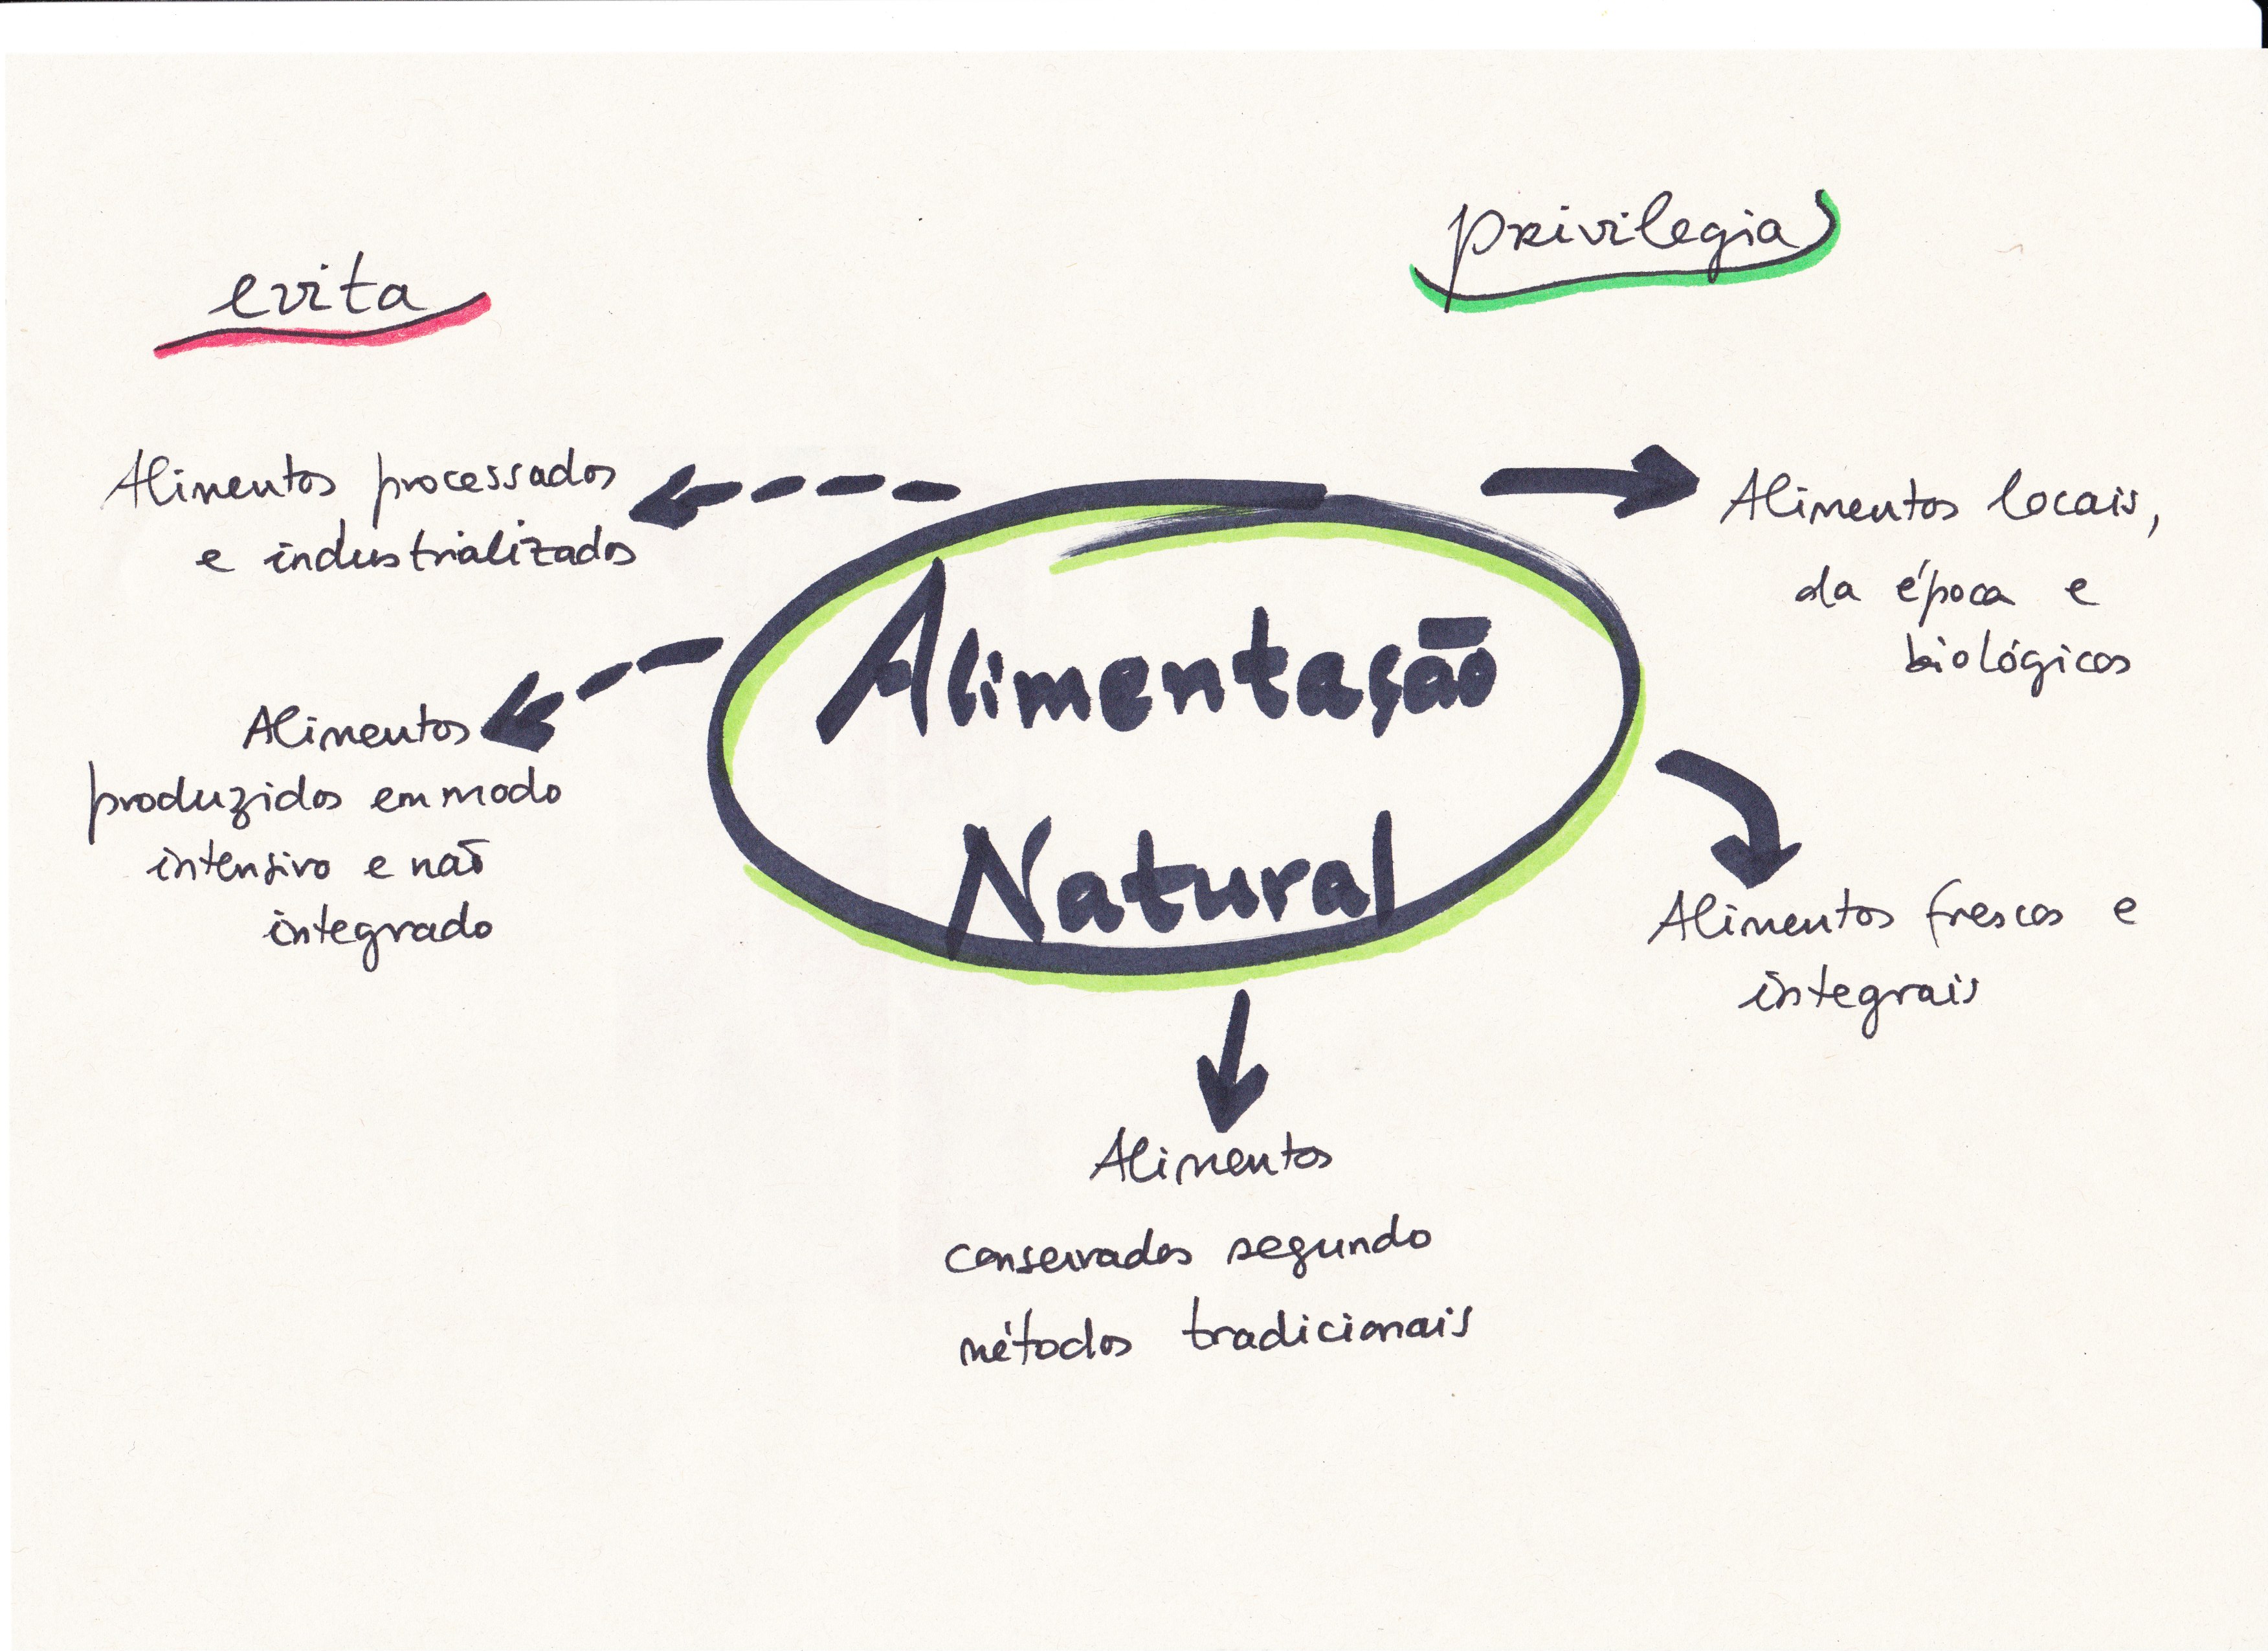 evita
privilegia
Alimentos processados
e industrializados
Alimentos
produzidos em modo
intensivo e não
integrado
Alimentação
Natural
Alimentos locais,
da época e
biológicos
Alimentos frescos e
integrais
Alimentos
conservados segundo
métodos tradicionais